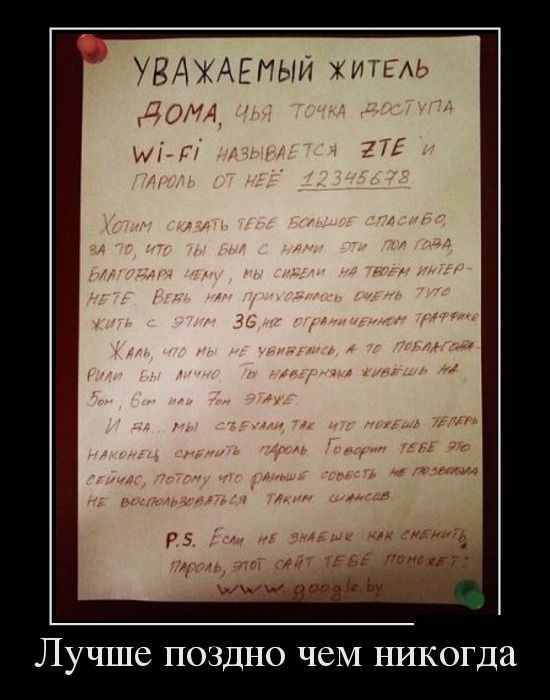 УВАЖАЕМЫЙ ЖИТЕЛЬ
ДОМА, ЧЬЯ ТОЧКА ДОСТУПА
Wi-Fi НАЗЫВАЕТСЯ ZTE И
ПАРОЛЬ ОТ НЕЁ 12345678.
ХОТИМ СКАЗАТЬ ТЕБЕ БОЛЬШОЕ СПАСИБО,
ЗА ТО, ЧТО ТЫ БЫЛ С НАМИ ЭТИ ПОЛ ГОДА,
БЛАГОДАРЯ ЧЕМУ, МЫ СИДЕЛИ НА ТВОЁМ ИНТЕР-
НЕТЕ. ВЕДЬ НАМ ПРИХОДИЛОСЬ ОЧЕНЬ ТУГО
ЖИТЬ С ЭТИМ 3G, ОГРАНИЧЕННОМ ТРАФФИКЕ
ЖАЛЬ, ЧТО МЫ НЕ УВИДЕЛИСЬ, А ТО ПОБЛАГОДА-
РИЛИ БЫ ЛИЧНО. ТЫ НАВЕРНЯКА ЖИВЁШЬ НА
5ом, 6ом ИЛИ 7ом ЭТАЖЕ.
И ДА... МЫ СЪЕХАЛИ, ТАК ЧТО МОЖЕШЬ ТЕПЕРЬ
НАКОНЕЦ СМЕНИТЬ ПАРОЛЬ. ГОВОРИМ ТЕБЕ ЭТО
СЕЙЧАС, ПОТОМУ ЧТО РАНЬШЕ СОВЕСТЬ НЕ ПОЗВОЛЯЛА
НЕ ВОСПОЛЬЗОВАТЬСЯ ТАКИМ ШАНСОВ.
P.S. ЕСЛИ НЕ ЗНАЕШЬ КАК СМЕНИТЬ
ПАРОЛЬ, ЭТОТ САЙТ ТЕБЕ ПОМОЖЕТ:
www.google.by
Лучше поздно чем никогда